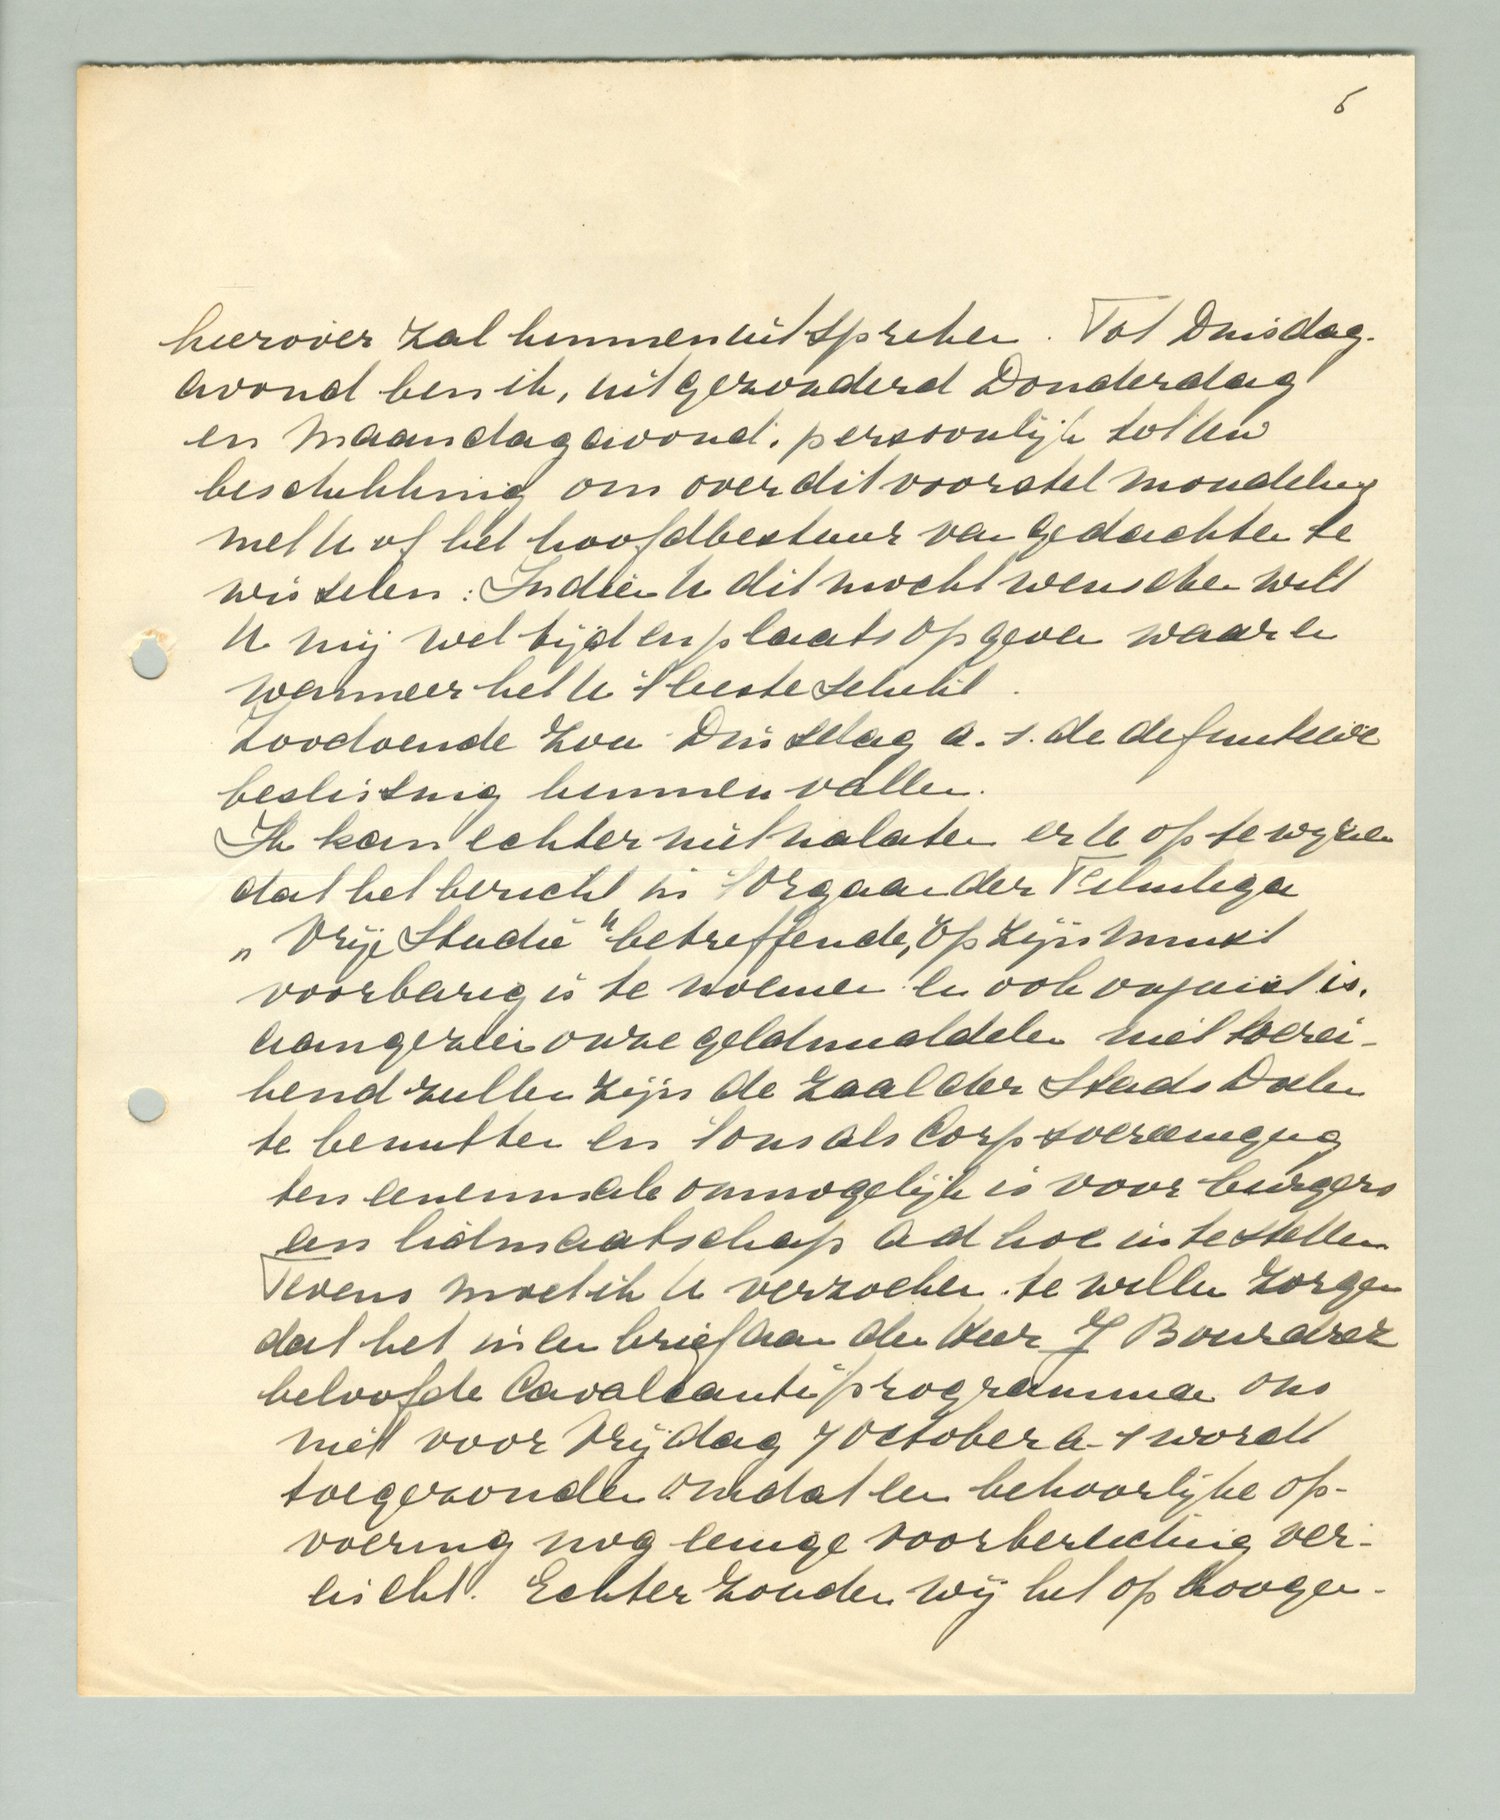 6
hierover zal kunnen uitspreken. Tot Dinsdag-
avond ben ik, uitgezonderd Donderdag
en Maandagavond, persoonlijk tot Uw
beschikking om over dit voorstel mondeling
met U of het hoofdbestuur van gedachten te
wisselen. Indien U dit mocht wenschen wilt
U mij wel tijd en plaats opgeven waar en
wanneer het U 't beste schikt.
Zoodoende zou Dinsdag a.s. de definitieve
beslissing kunnen vallen.
Ik kan echter niet nalaten er U op te wijzen
dat het bericht in 't Orgaan der Filmliga
„Vrije Studie" betreffende, op zijn minst
voorbarig is te noemen en ook onjuist is,
aangezien onze geldmiddelen niet toerei-
kend zullen zijn de zaal der Stads Doelen
te benutten en 't ons als Corpsvereeniging
ten eenenmale onmogelijk is voor burgers
een lidmaatschap ad hoc in te stellen
Tevens moet ik U verzoeken te willen zorgen
dat het in een brief aan den Heer J
beloofde Cavalcanti programma ons
niet voor Vrijdag 7 October a.s wordt
toegezonden omdat een behoorlijke op-
voering nog eenige voorbereiding ver-
eischt. Echter zouden wij het op hoogen-